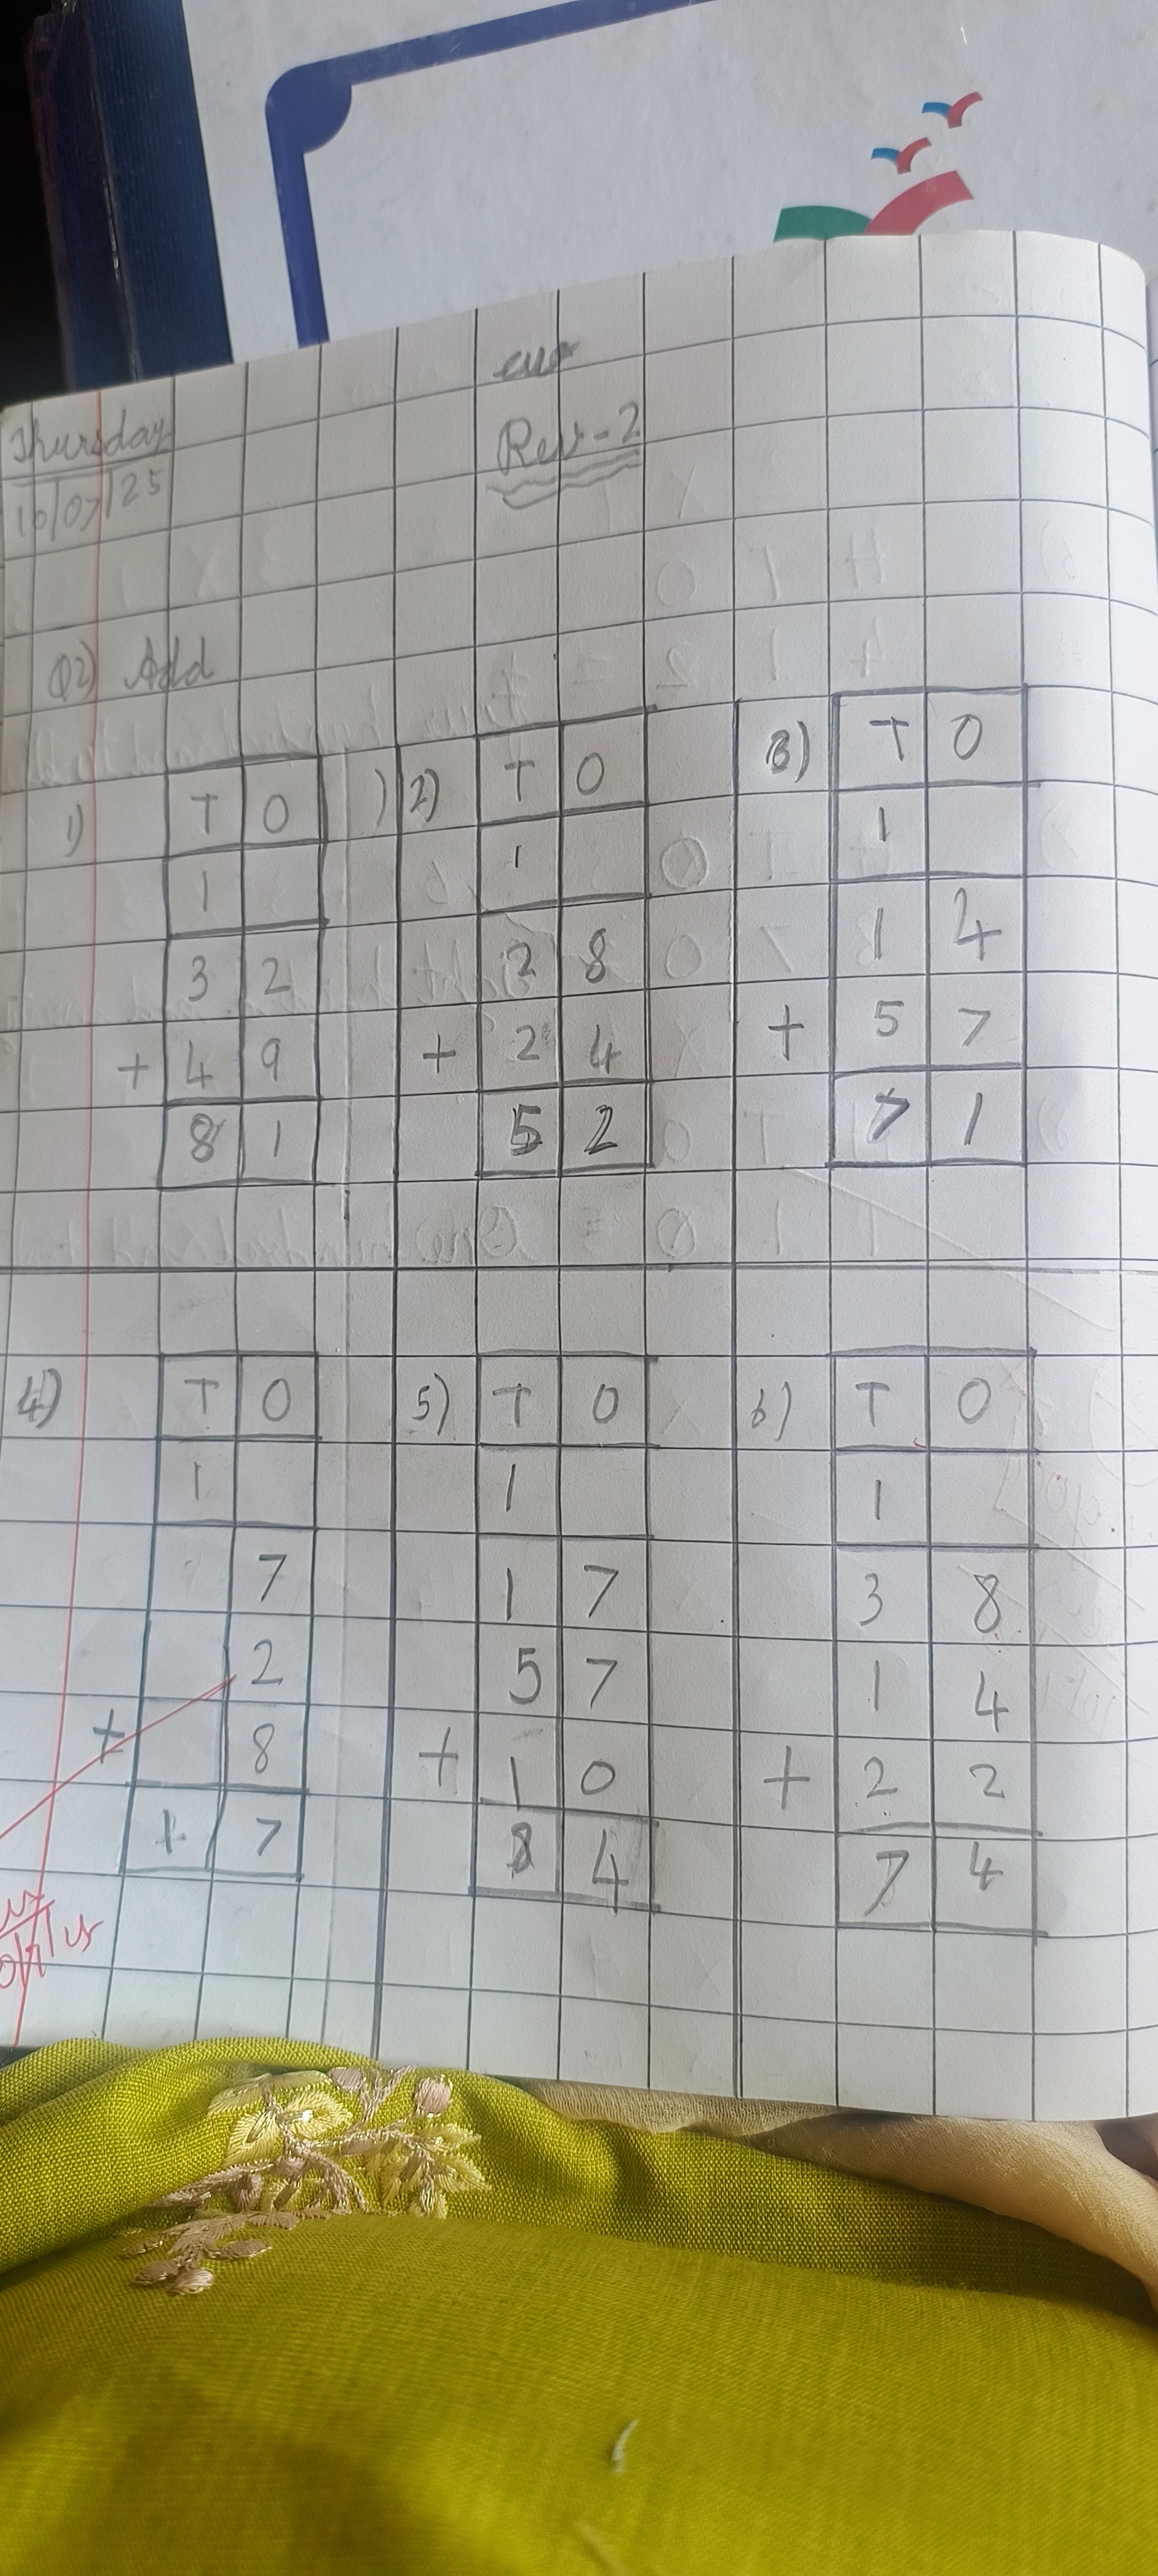 Thursday
10/07/25
Rev-2
Q2) Add
1) T O
1
3 2
+ 4 9
8 1
2) T O
1
2 8
+ 2 4
5 2
3) T O
1
1 4
+ 5 7
7 1
4) T O
1
7
2
+ 8
1 7
5) T O
1
1 7
5 7
+ 1 0
8 4
6) T O
1
3 8
1 4
+ 2 2
7 4